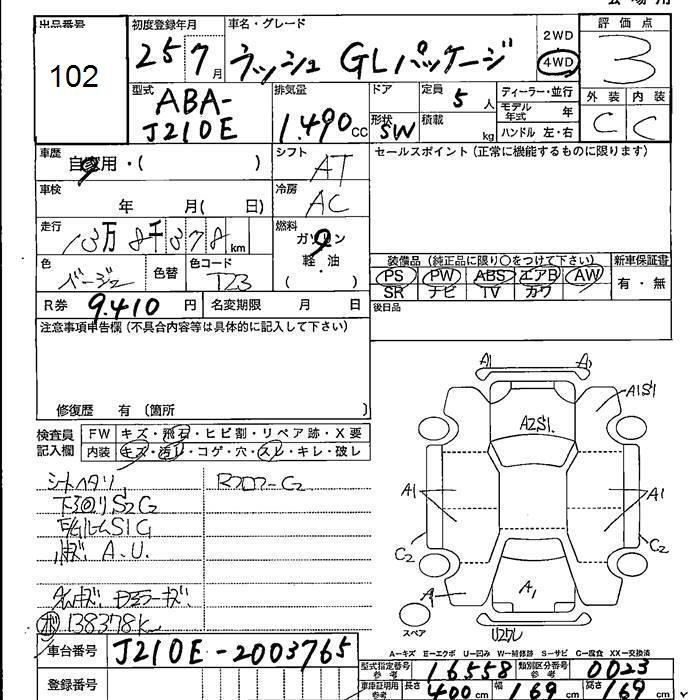 会場用
出品番号 初度登録年月 車名・グレード 評価点
102
25 7月 ラッシュ GLパッケージ 2WD 4WD 3
型式 排気量 ドア 定員 ディーラー・並行 外装 内装
ABA-J210E 1.490cc 5人 モデル年式 年 C C
形状 SW 積載 kg ハンドル 左・右
車歴 自家用・( ) シフト AT セールスポイント(正常に機能するものに限ります)
車検 年 月( 日) 冷房 AC
走行 13万8千378km 燃料 ガソリン
軽・油
( )
色 ベージュ 色替 色コード T23
装備品(純正品に限り○をつけて下さい) 新車保証書
PS PW ABS エアB AW 有・無
SR ナビ TV カワ
R券 9.410円 名変期限 月 日 後日品
注意事項申告欄(不具合内容等は具体的に記入して下さい)
修復歴 有(箇所 )
検査員記入欄 FW キズ・飛石・ヒビ割・リペア跡・X要
内装 キズ・汚レ・コゲ・穴・スレ・キレ・破レ
シートヘタリ
下回りS2C2
E/GルームS1C1
A.U.
138378km
A1 A1
A1S1
A2S1
A1 A1
C2 C2
A A1
スペア U2S1
A-キズ E-エクボ U-凹み W-補修跡 S-サビ C-腐食 XX-交換済
車台番号 J210E-2003765
型式指定番号 参考 16558 類別区分番号 参考 0023
登録番号 車庫証明用 参考 長さ 400cm 幅 169cm 高さ 169cm